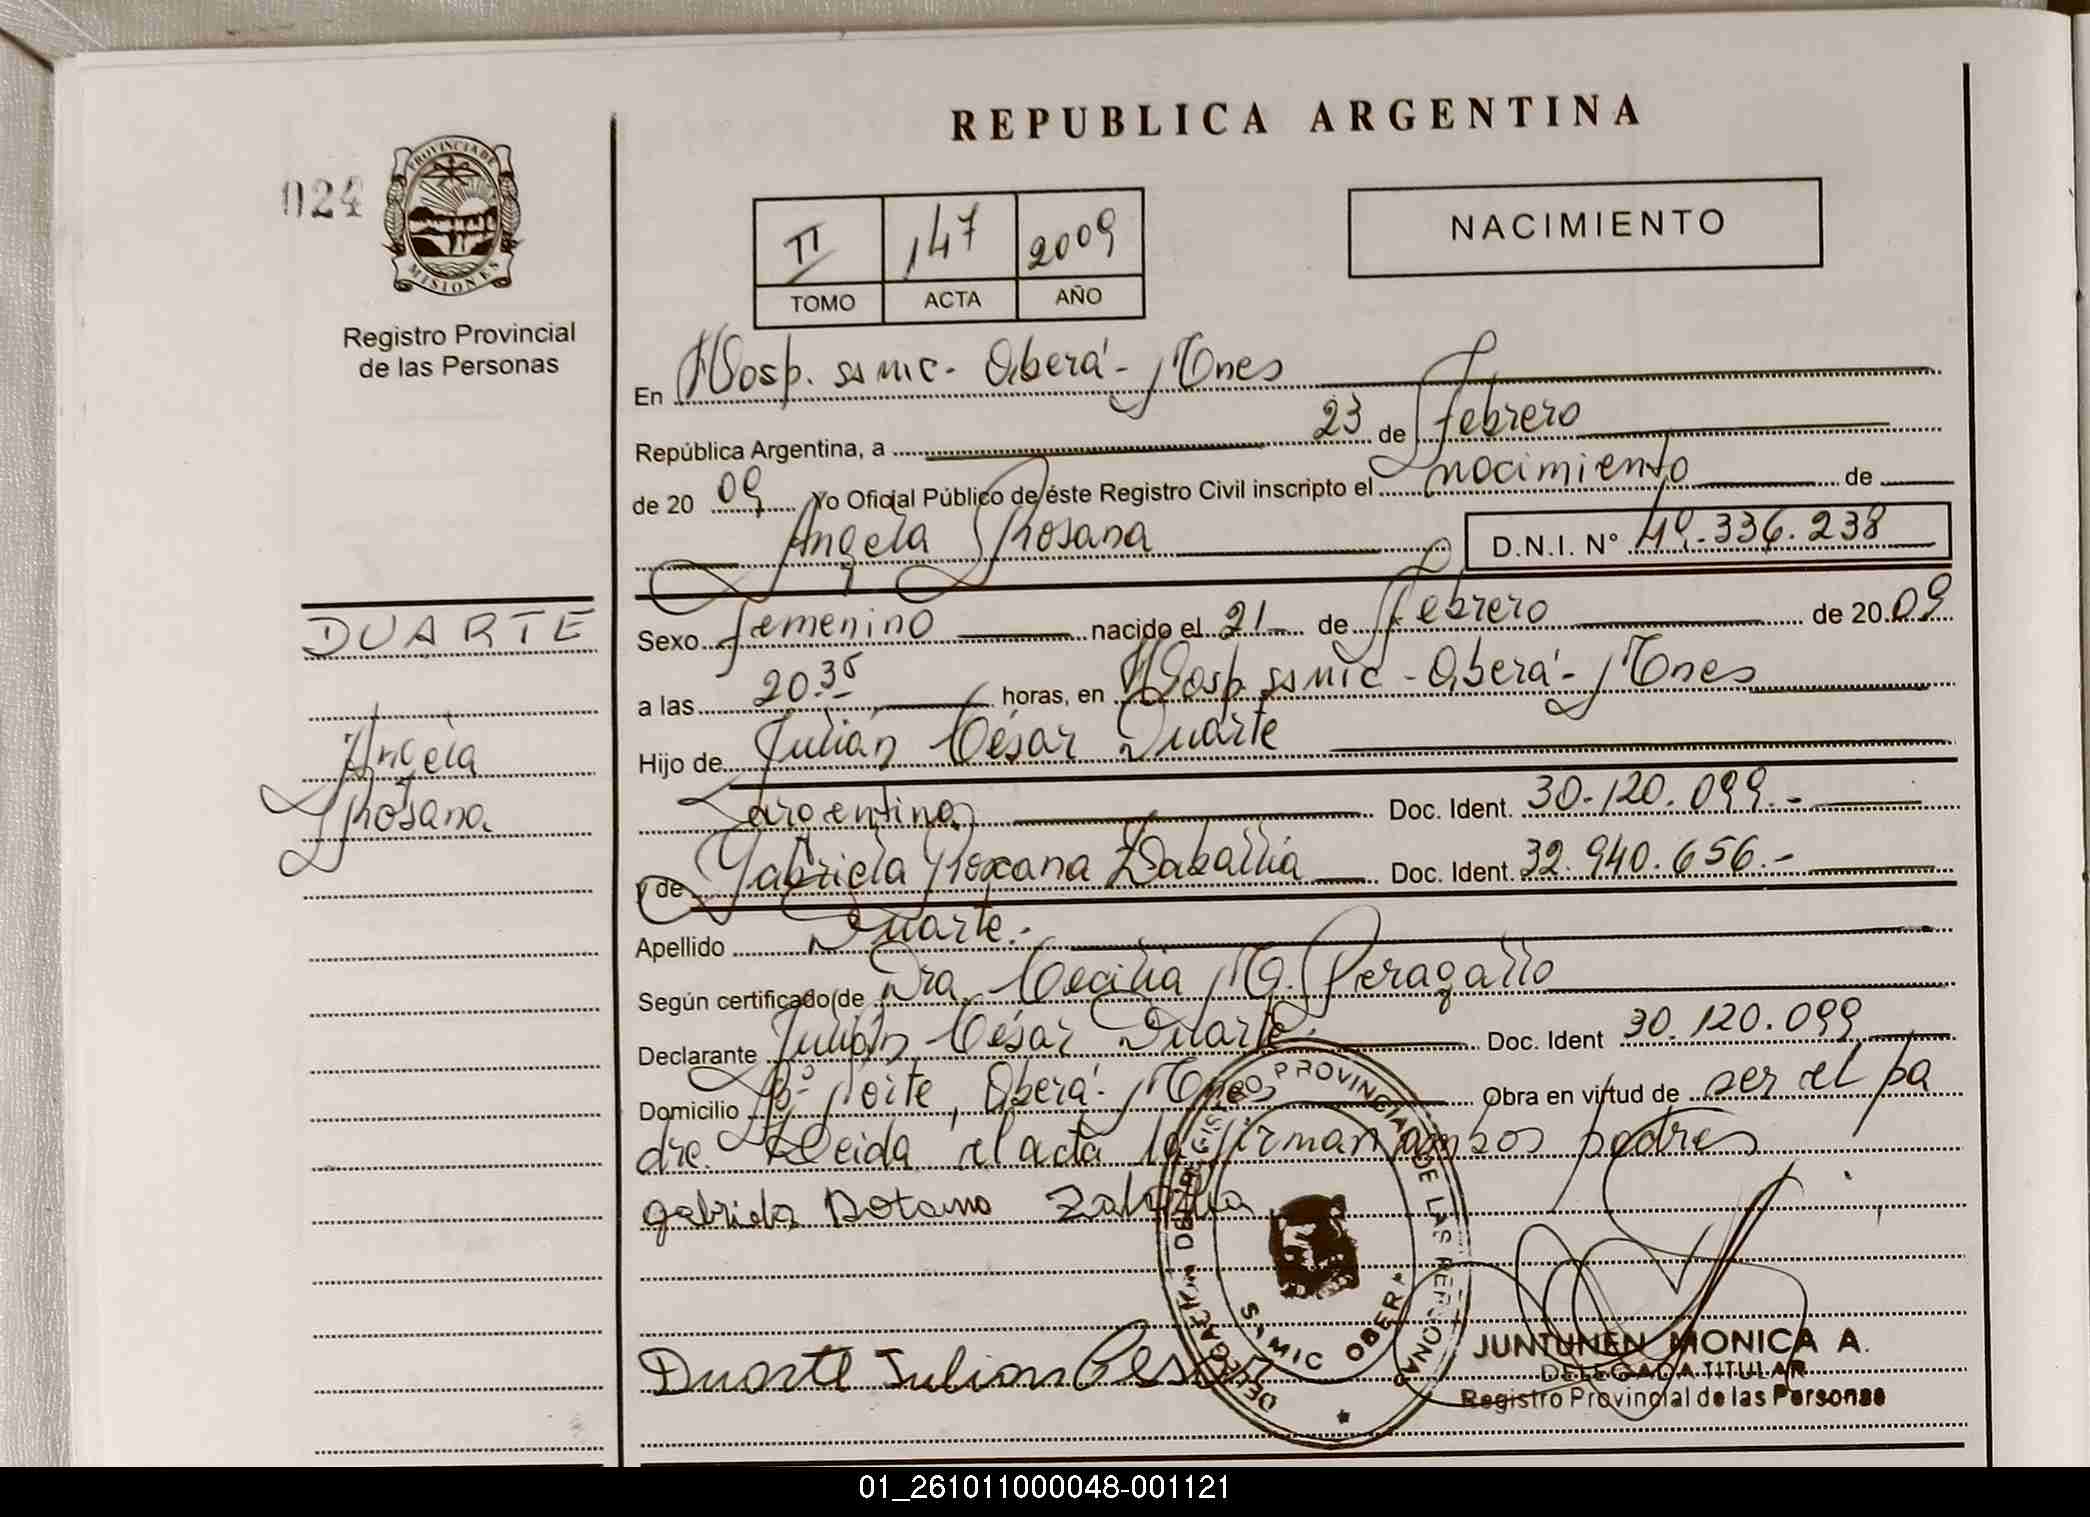 REPUBLICA ARGENTINA
024
PROVINCIA DE
MISIONES
Registro Provincial
de las Personas
II 147 2009
TOMO ACTA AÑO
NACIMIENTO
En Hosp. ss mic- Oberá- Mnes
República Argentina, a 23 de febrero
de 20 09 Yo Oficial Público de éste Registro Civil inscripto el nacimiento de
Angela Rosana D.N.I. N° 49.336.238
DUARTE
Angela
Rosana
Sexo femenino nacido el 21 de febrero de 20 09
a las 20.35 horas, en Hosp. ss mic - Oberá- Mnes
Hijo de Julián César Duarte
argentino Doc. Ident. 30.120.099.-
y de Gabriela Roxana Zaballia Doc. Ident. 32.940.656.-
Apellido Duarte.-
Según certificado de Dra. Cecilia M. Peragallo
Declarante Julián César Duarte. Doc. Ident 30.120.099
Domicilio Norte, Oberá- Mnes Obra en virtud de ser el pa
dre. Leida el acta la firman ambos padres
gabriela
Duarte Julian Ces
PROVINCIAL DE LAS PERSONAS
SAMIC OBERA
JUNTUNEN MONICA A.
DELEGADA TITULAR
Registro Provincial de las Personas
01_261011000048-001121